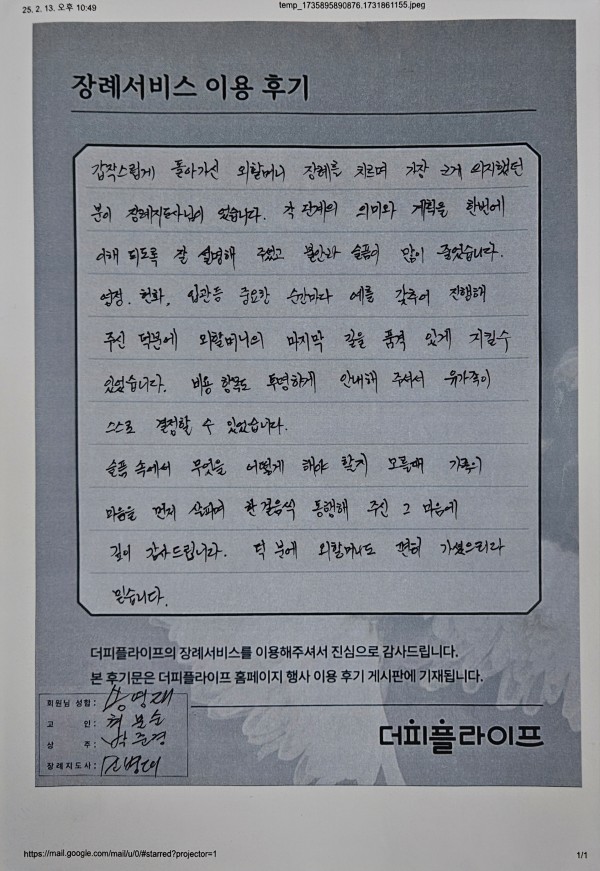 25. 2. 13. 오후 10:49
temp_1735895890876.1731861155.jpeg
장례서비스 이용 후기
갑작스럽게 돌아가신 외할머니 장례를 치르며 가장 크게 의지했던
분이 장례지도사님이 었습니다. 각 단계의 의미와 계획을 한번에
이해 되도록 잘 설명해 주었고 불안과 슬픔이 많이 줄었습니다.
염정. 헌화, 입관등 중요한 순간마다 예를 갖추어 진행해
주신 덕분에 외할머니의 마지막 길을 품격 있게 지킬수
있었습니다. 비용 항목도 투명하게 안내해 주셔서 유가족이
스스로 결정할 수 있었습니다.
슬픔 속에서 무엇을 어떻게 해야 할지 모를때 가족의
마음을 먼저 살피며 한 걸음씩 동행해 주신 그 마음에
깊이 감사드립니다. 덕 분에 외할머니도 편히 가셨으리라
믿습니다.
더피플라이프의 장례서비스를 이용해주셔서 진심으로 감사드립니다.
본 후기문은 더피플라이프 홈페이지 행사 이용 후기 게시판에 기재됩니다.
회원님 성함 : 송영재
고 인 :
상 주 : 박준경
장례지도사 :
더피플라이프
https://mail.google.com/mail/u/0/#starred?projector=1
1/1